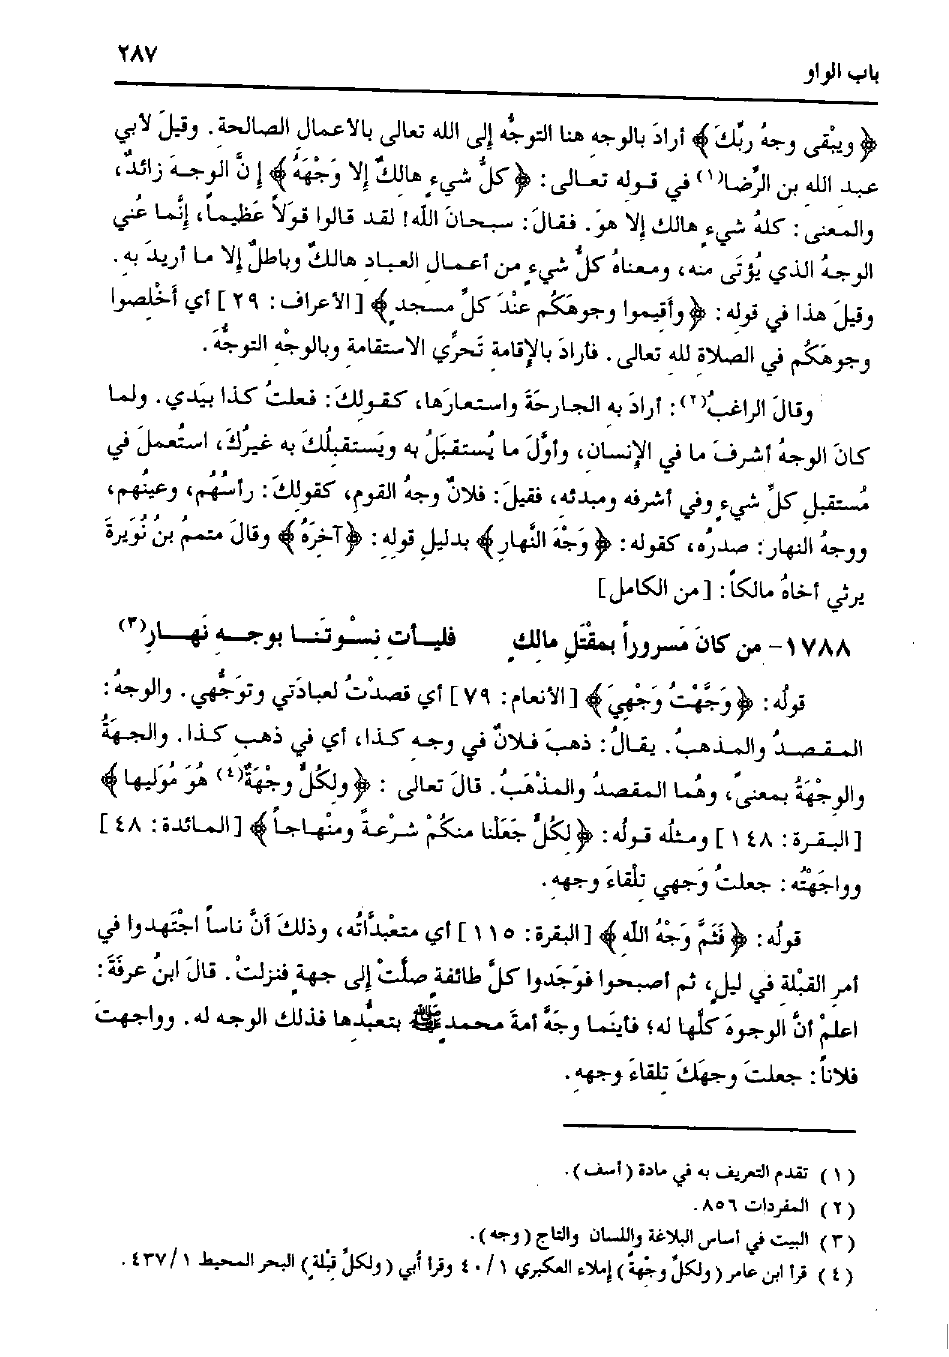 ٢٨٧
باب الواو
﴿ويبْقى وجهُ ربِّكَ﴾ أرادَ بالوجهِ هنا التوجُّهُ إلى الله تعالى بالأعمالِ الصالحةِ. وقيلَ لأبي
عبد الله بن الرِّضا(١) في قوله تعالى: ﴿كلُّ شيءٍ هالكٌ إلا وَجْهَهُ﴾ إنَّ الوجهَ زائدٌ،
والمعنى: كلهُ شيءٍ هالك إلا هوَ. فقالَ: سبحانَ اللَّه! لقد قالوا قَولاً عَظيماً، إنَّما عُني
الوجهُ الذي يُؤتَى منه، ومعناهُ كلُّ شيءٍ من أعمالِ العبادِ هالكٌ وباطلٌ إلا ما أريدَ بهِ.
وقيلَ هذا في قولهِ: ﴿وأقيموا وجوهَكُم عنْدَ كلِّ مسجدٍ﴾ [الأعراف: ٢٩] أي أخْلِصوا
وجوهَكُم في الصلاةِ للهِ تعالى. فأرادَ بالإقامةِ تَحرِّي الاستقامةِ وبالوجْهِ التوجُّهَ.
وقالَ الراغبُ(٢): أرادَ بهِ الجارحَةَ واستعارَها، كقولكَ: فعلتُ كذا بيَدي. ولما
كانَ الوجهُ أشرفَ ما في الإنسانِ، وأوَّلَ ما يُستقبَلُ به ويَستقبلُكَ به غيرُكَ، استُعملَ في
مُستقبلِ كلِّ شيءٍ وفي أشرفه ومبدئه، فقيلَ: فلانٌ وجهُ القومِ، كقولكَ: رأسُهُم، وعينُهم،
ووجهُ النهارِ: صدرُه، كقوله: ﴿وَجْهَ النَّهارِ﴾ بدليلِ قولهِ: ﴿آخِرَهُ﴾ وقالَ متممُ بنُ نُوَيرةَ
يرثي أخاهُ مالكاً: [من الكامل]
١٧٨٨- من كانَ مَسروراً بمقْتَلِ مالكٍ فليـأتِ نِسْوتَنـا بوجـهِ نَهـارِ(٣)
قولُه: ﴿وَجَّهْتُ وَجْهِيَ﴾ [الأنعام: ٧٩] أي قصدْتُ لعبادَتي وتوَجُّهي. والوجهُ:
المقصدُ والمذهبُ. يقالُ: ذهبَ فلانٌ في وجهِ كذا، أي في ذهبِ كذا. والجهةُ
والوِجْهَةُ بمعنىً، وهُما المقصدُ والمذْهَبُ. قالَ تعالى : ﴿ولكُلٍّ وِجْهَةٌ(٤) هُوَ مُوَليها﴾
[البقرة: ١٤٨] ومثلُه قولُه: ﴿لِكُلٍّ جَعَلْنا منكُمْ شرْعةً ومنْهاجاً﴾ [المائدة: ٤٨]
وواجَهْتُه: جعلتُ وَجهي تلْقاءَ وجههِ.
قولُه: ﴿فثَمَّ وَجْهُ اللَّهِ﴾ [البقرة: ١١٥] أي متعبَّداتُه، وذلكَ أنَّ ناساً اجْتَهدوا في
أمرِ القبْلةِ في ليلٍ، ثم أصبحوا فوَجَدوا كلَّ طائفةٍ صلَّتْ إلى جهةٍ فنزلتْ. قالَ ابنُ عرفَةَ:
اعلمْ أنَّ الوجوهَ كلَّها له؛ فأينَما وجَّهَ أمةَ محمدٍ ﷺ بتعبُّدها فذلك الوجه له. وواجهتَ
فلاناً: جعلتَ وجهَكَ تلقاءَ وجههِ.
(١) تقدم التعريف به في مادة (أسف).
(٢) المفردات ٨٥٦.
(٣) البيت في أساس البلاغة واللسان والتاج (وجه).
(٤) قرأ ابن عامر (ولكلٍّ وجْهةٌ) إملاء العكبري ١/ ٤٠ وقرأ أُبي (ولكلٍّ قِبْلةٌ) البحر المحيط ١/ ٤٣٧.